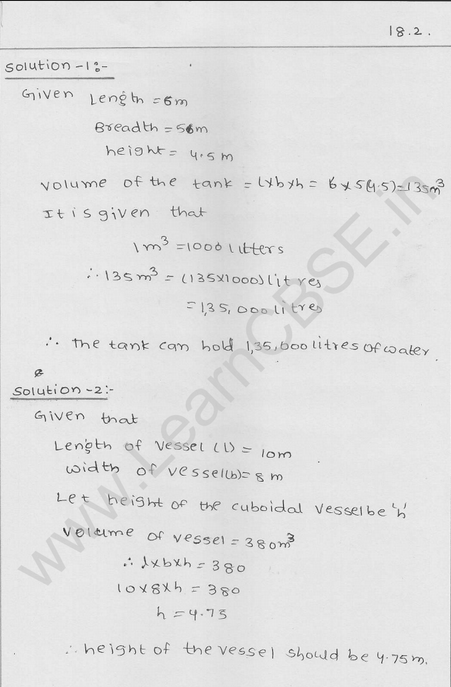 18.2.
Solution-1:-
Given Length = 6m
Breadth = 56m
height = 4.5m
volume of the tank = l×b×h = 6×5(4.5)=135m³
It is given that
1m³=1000 litters
∴ 135m³ = (135×1000)litres
=1,35,000 litres
∴ the tank can hold 1,35,000 litres of water.
Solution-2:-
Given that
Length of vessel (l) = 10m
width of vessel(b)= 8 m
Let height of the cuboidal vessel be 'h'
volume of vessel = 380m³
∴ l×b×h = 380
10×8×h = 380
h = 4.75
∴ height of the vessel should be 4.75m.
www.LearnCBSE.in